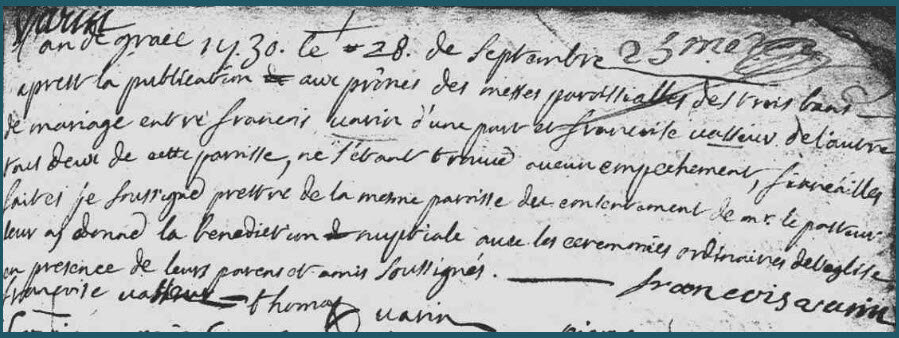 Varin
L'an de grace 1730. le 28. de septembre 23 mar
aprest la publication aux prônes des messes paroissialles des trois bans
de mariage entre francois varin d'une part et francoise vasseur de l'autre
tous deux de cette paroisse, ne s'étant trouvé aucun empechement, fiancailles
faites je soussigné prestre de la mesme paroisse du consentement de mr. le pasteur
leur ay donné la benediction nuptiale avec les ceremonies ordinaires de l'eglise
en presence de leurs parens et amis soussignés.
francois varin
françoise vasseur thomas varin